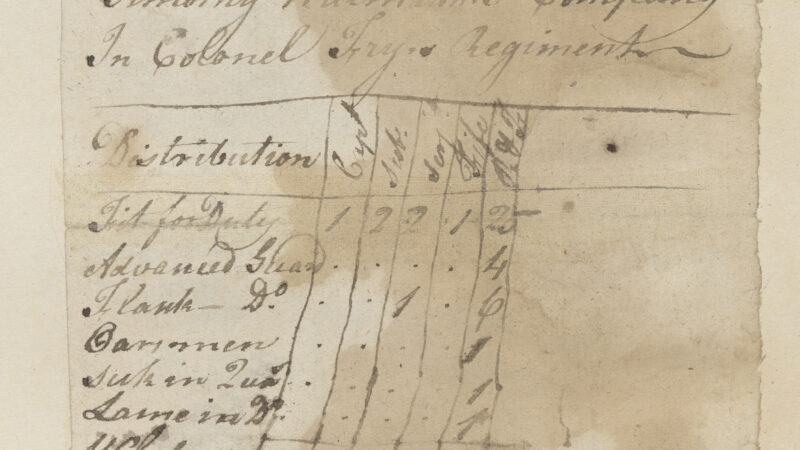 Company
In Colonel Frys Regiment
Distribution Capt Sub Serj Fife R & F
Fit for Duty 1 2 2 1 25
Advanced Guard . . . . 4
Flank Do . . 1 . 6
Oarsmen . . . . 1
sick in Quar . . . . 1
Lame in Do . . . . 1